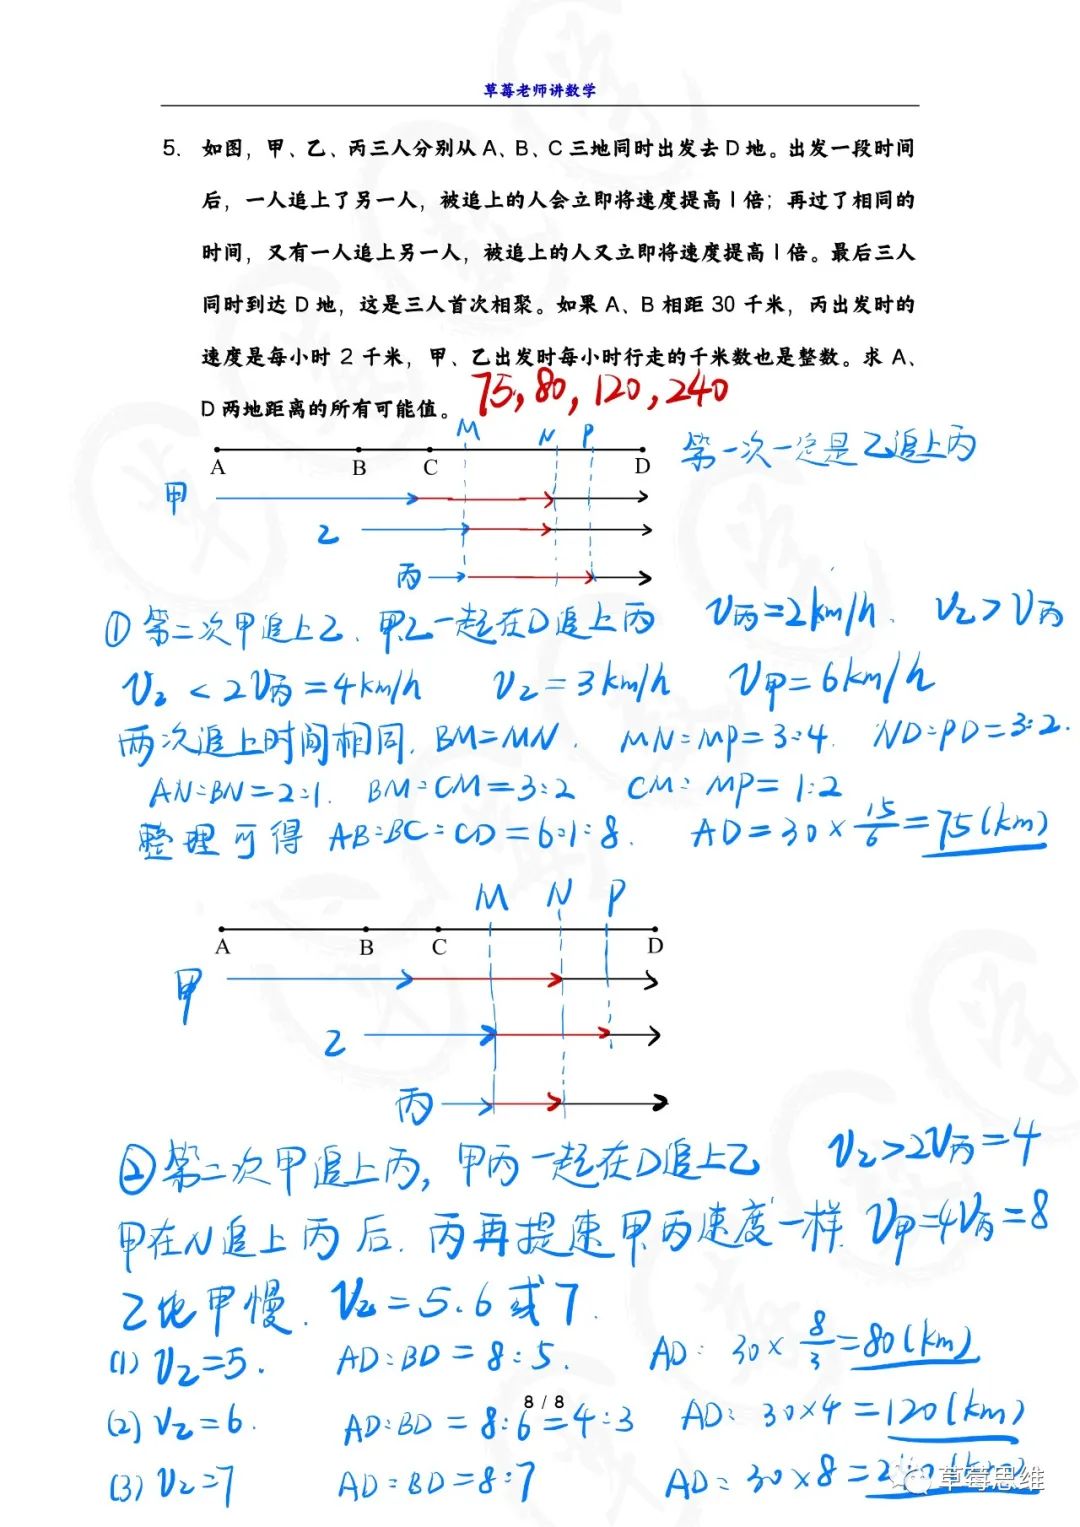 草莓老师讲数学
5. 如图，甲、乙、丙三人分别从 A、B、C 三地同时出发去 D 地。出发一段时间
后，一人追上了另一人，被追上的人会立即将速度提高 1 倍；再过了相同的
时间，又有一人追上另一人，被追上的人又立即将速度提高 1 倍。最后三人
同时到达 D 地，这是三人首次相聚。如果 A、B 相距 30 千米，丙出发时的
速度是每小时 2 千米，甲、乙出发时每小时行走的千米数也是整数。求 A、
D 两地距离的所有可能值。 75, 80, 120, 240
M N P
A B C D
第一次一定是乙追上丙
甲
乙
丙
① 第二次甲追上乙、甲乙一起在D追上丙 V丙=2km/h. V乙>V丙
V乙<2V丙=4km/h V乙=3km/h V甲=6km/h
两次追上时间相同. BM=MN. MN:MP=3:4. ND:PD=3:2.
AN:BN=2:1. BM:CM=3:2 CM:MP=1:2
整理可得 AB:BC:CD=6:1:8. AD=30×15/6=75(km)
M N P
A B C D
甲
乙
丙
②第二次甲追上丙，甲丙一起在D追上乙 V乙>2V丙=4
甲在N追上丙后. 丙再提速 甲丙速度一样. V甲=4V丙=8
乙比甲慢. V乙=5.6或7.
(1) V乙=5. AD:BD=8:5. AD: 30×8/3=80(km)
8 / 8
(2) V乙=6. AD:BD=8:6=4:3 AD: 30×4=120(km)
(3) V乙=7 AD:BD=8:7 AD: 30×8=240(km)
草莓思维